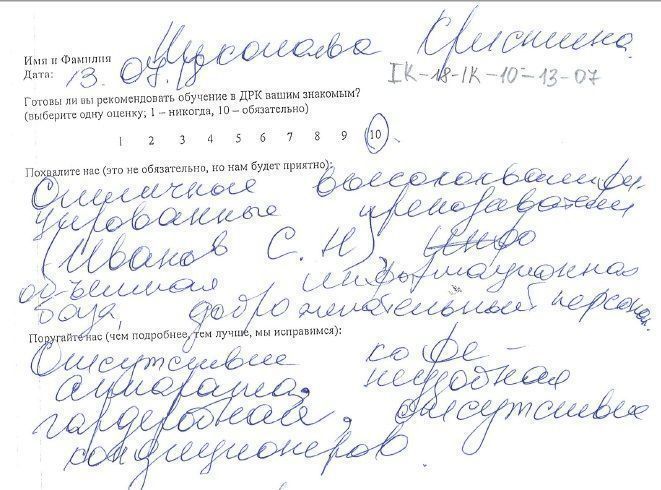 Имя и Фамилия Кристина
Дата: 13.07.
IK-18-IK-10-13-07
Готовы ли вы рекомендовать обучение в ДРК вашим знакомым?
(выберите одну оценку; 1 – никогда, 10 – обязательно)
1 2 3 4 5 6 7 8 9 10
Похвалите нас (это не обязательно, но нам будет приятно):
Отличные высококвалифи-
цированные преподаватели
(Иванов С. Н)
объемная информационная
база, доброжелательный персонал.
Поругайте нас (чем подробнее, тем лучше, мы исправимся):
Отсутствие кофе-
аппарата, неудобная
гардеробная, отсутствие
кондиционеров.